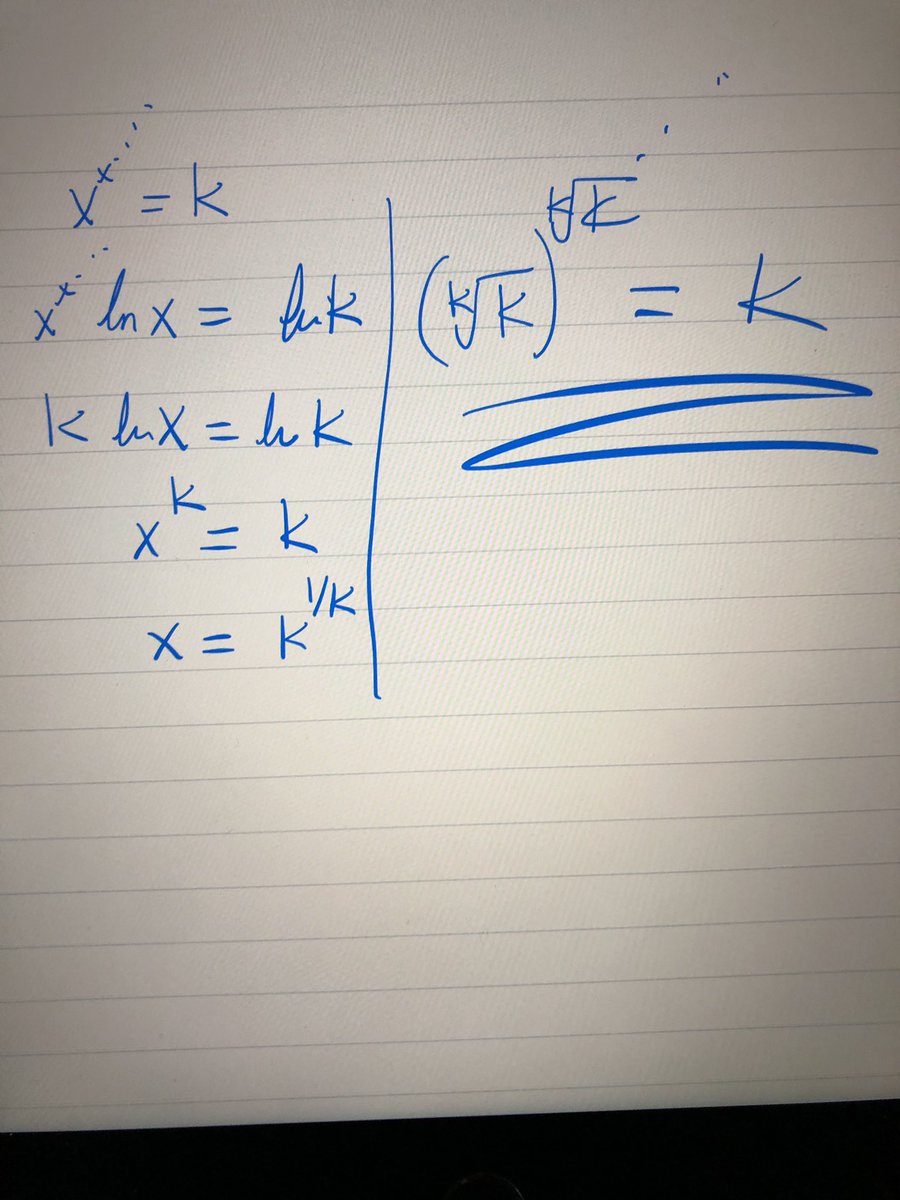 x^x^⋰ = k
x^x^⋰ ln x = ln k
k ln x = ln k
x^k = k
x = k^1/k
(ᵏ√k)^ᵏ√k^⋰ = k